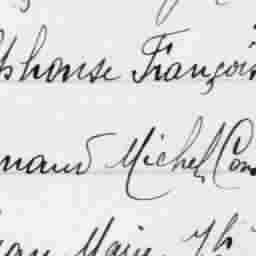 phonse François
nand Michel Con
Marie